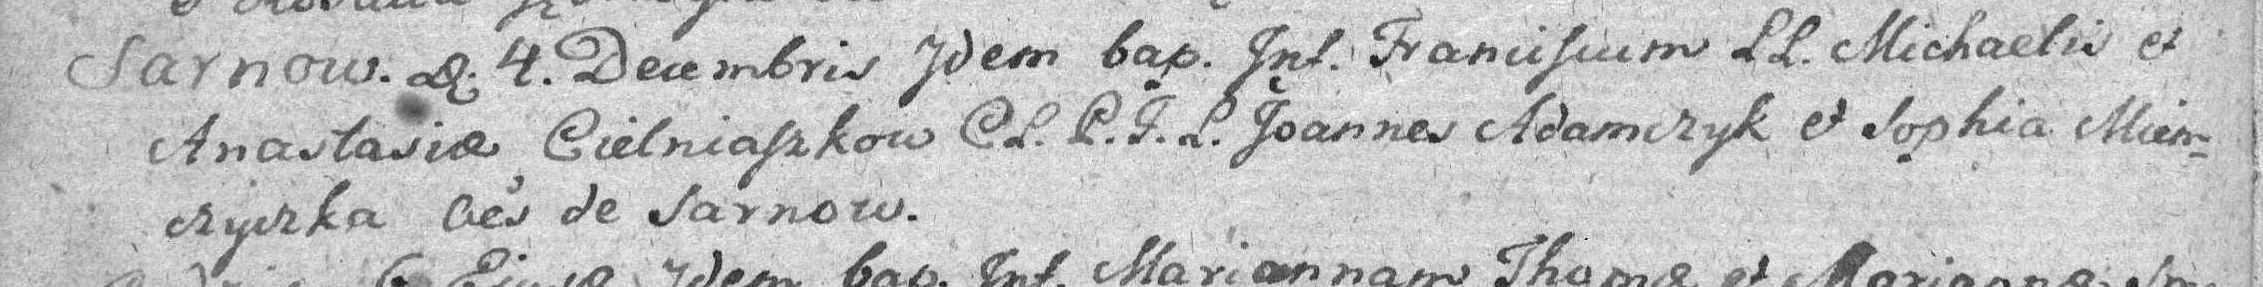 Sarnow. d. 4. Decembris Idem bap. Inf. Franciscum LL. Michaelis et
Anastasiæ Cielniaszkow CL. P. F. L. Joannes Adamczyk et Sophia Miem-
czyczka oes de Sarnow.
6 Ejusd Idem bap. Inf. Mariannam Thomæ et Mariannæ